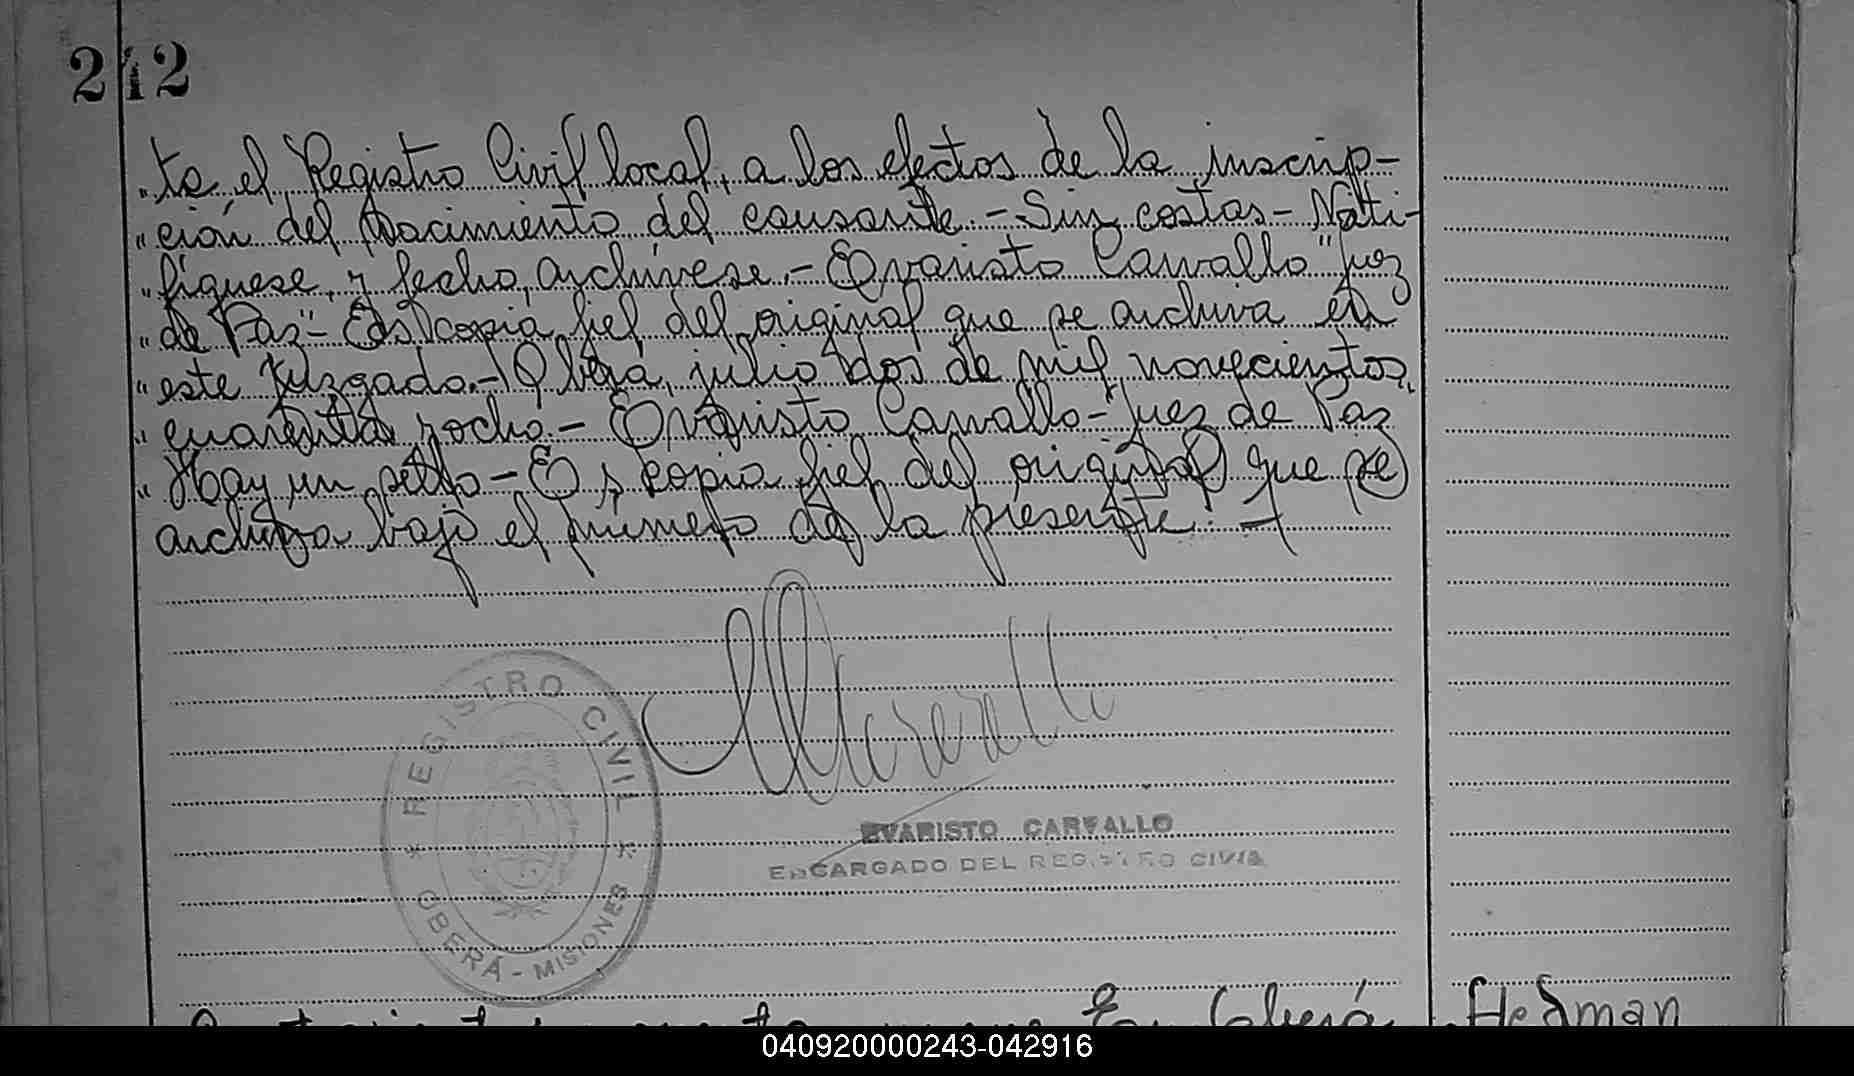 212
"te el Registro Civil local, a los efectos de la inscrip-
"ción del nacimiento del causante.- Sin costas.- Noti-
"fíquese, y fecho, archívese.- Evaristo Carvallo "Juez
"de Paz"- Es copia fiel del original que se archiva en
"este Juzgado.- Oberá, julio dos de mil novecientos
"cuarenta y ocho.- Evaristo Carvallo - Juez de Paz
"Hay un sello - Es copia fiel del original que se
archiva bajo el número de la presente.-
EVARISTO CARVALLO
ENCARGADO DEL REGISTRO CIVIL
REGISTRO CIVIL
* OBERÁ - MISIONES *
En Oberá
Hedman
040920000243-042916